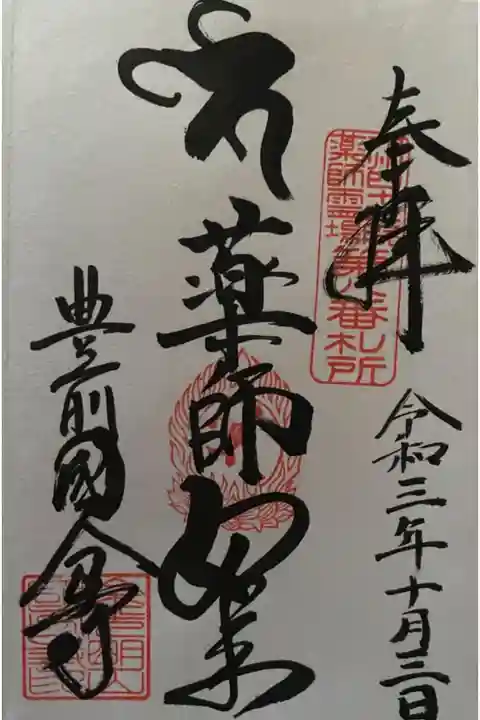 奉拝
令和三年十月三日
薬師如来
豊前國分寺
薬師霊場第八番札所